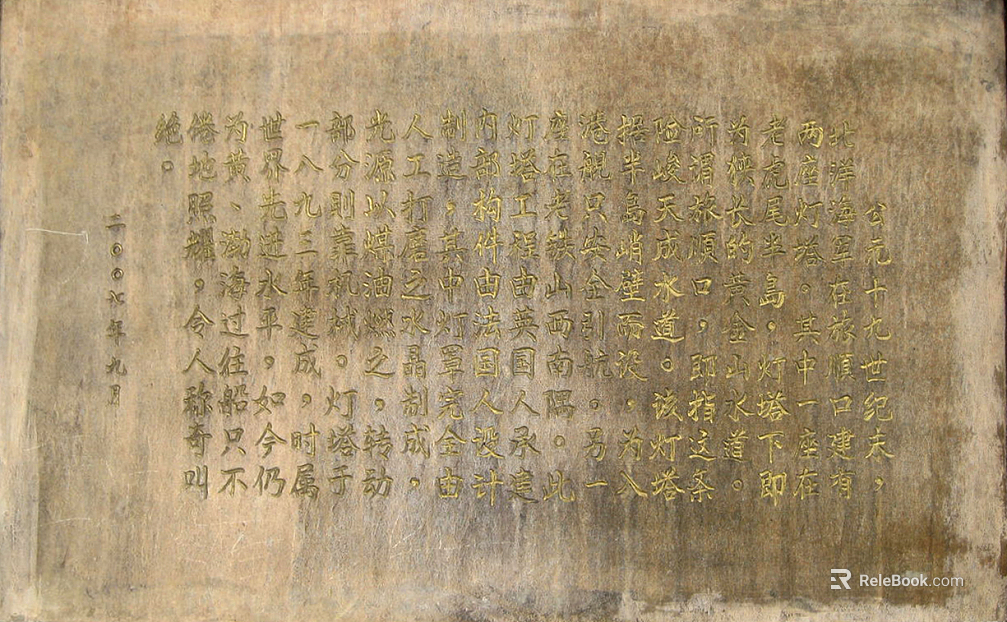 公元十九世纪末，
北洋海军在旅顺口建有
两座灯塔。其中一座在
老虎尾半岛。灯塔下即
为狭长的黄金山水道。
所谓旅顺口，即指这条
险峻天成水道。该灯塔
据半岛峭壁而设，为入
港舰只安全引航。另一
座在老铁山西南隅。此
灯塔工程由英国人承造
内部构件由法国人设计
制造，其中灯罩完全由
人工打磨之水晶制成，
光源以煤油燃之，转动
部分则靠机械。灯塔于
一八九三年建成，时属
世界先进水平，如今仍
为黄、渤海过往船只不
倦地照耀，令人称奇叫
绝。
二〇〇六年九月
ReleBook.com